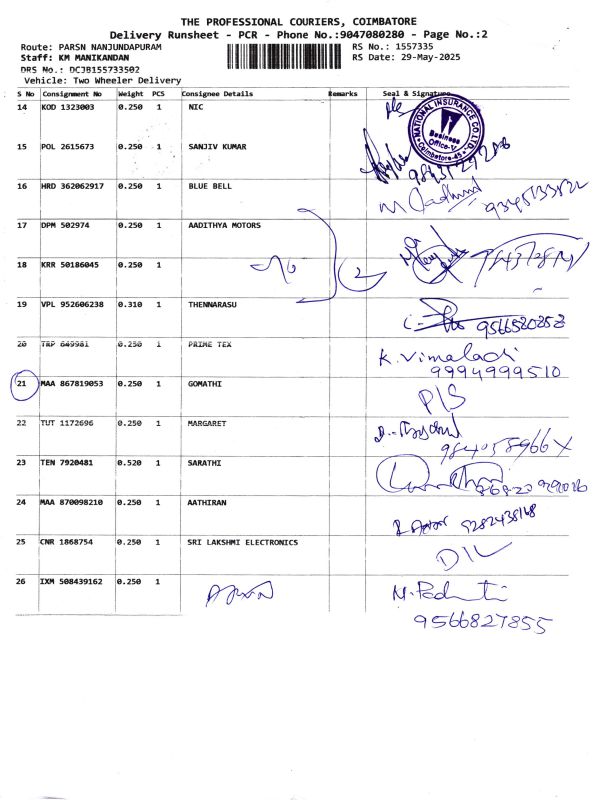 THE PROFESSIONAL COURIERS, COIMBATORE
Delivery Runsheet - PCR - Phone No.:9047080280 - Page No.:2
Route: PARSN NANJUNDAPURAM RS No.: 1557335
Staff: KM MANIKANDAN RS Date: 29-May-2025
DRS No.: DCJB155733502
Vehicle: Two Wheeler Delivery
S No Consignment No Weight PCS Consignee Details Remarks Seal & Signature
14 KOD 1323003 0.250 1 NIC
NATIONAL INSURANCE CO. LTD. Business Office-V Coimbatore-45
15 POL 2615673 0.250 1 SANJIV KUMAR
16 HRD 362062917 0.250 1 BLUE BELL
17 DPM 502974 0.250 1 AADITHYA MOTORS
18 KRR 50186045 0.250 1 2
19 VPL 952606238 0.310 1 THENNARASU
9566520252
20 TRP 649981 0.250 1 PRIME TEX
K. Vimaladi
9994999510
21 MAA 867819053 0.250 1 GOMATHI
P/S
22 TUT 1172696 0.250 1 MARGARET
23 TEN 7920481 0.520 1 SARATHI
24 MAA 870098210 0.250 1 AATHIRAN
9282438168
25 CNR 1868754 0.250 1 SRI LAKSHMI ELECTRONICS
D/L
26 IXM 508439162 0.250 1
9566827855